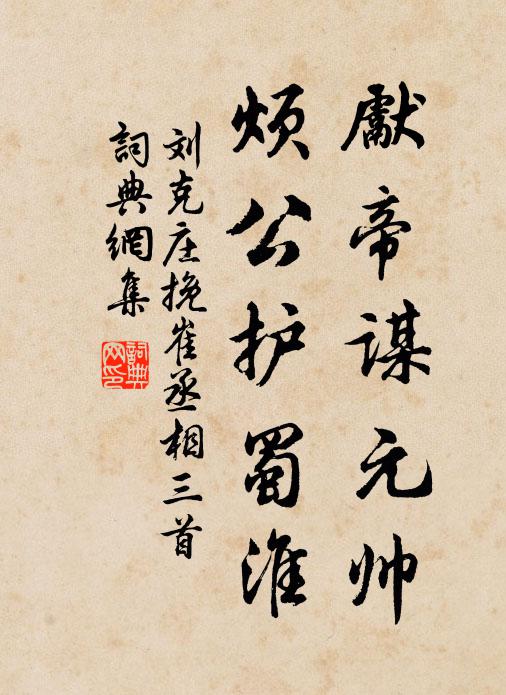 獻帝謀元帅
煩公护蜀淮
刘克庄挽崔丞相三首
詞典網集
詞典网印